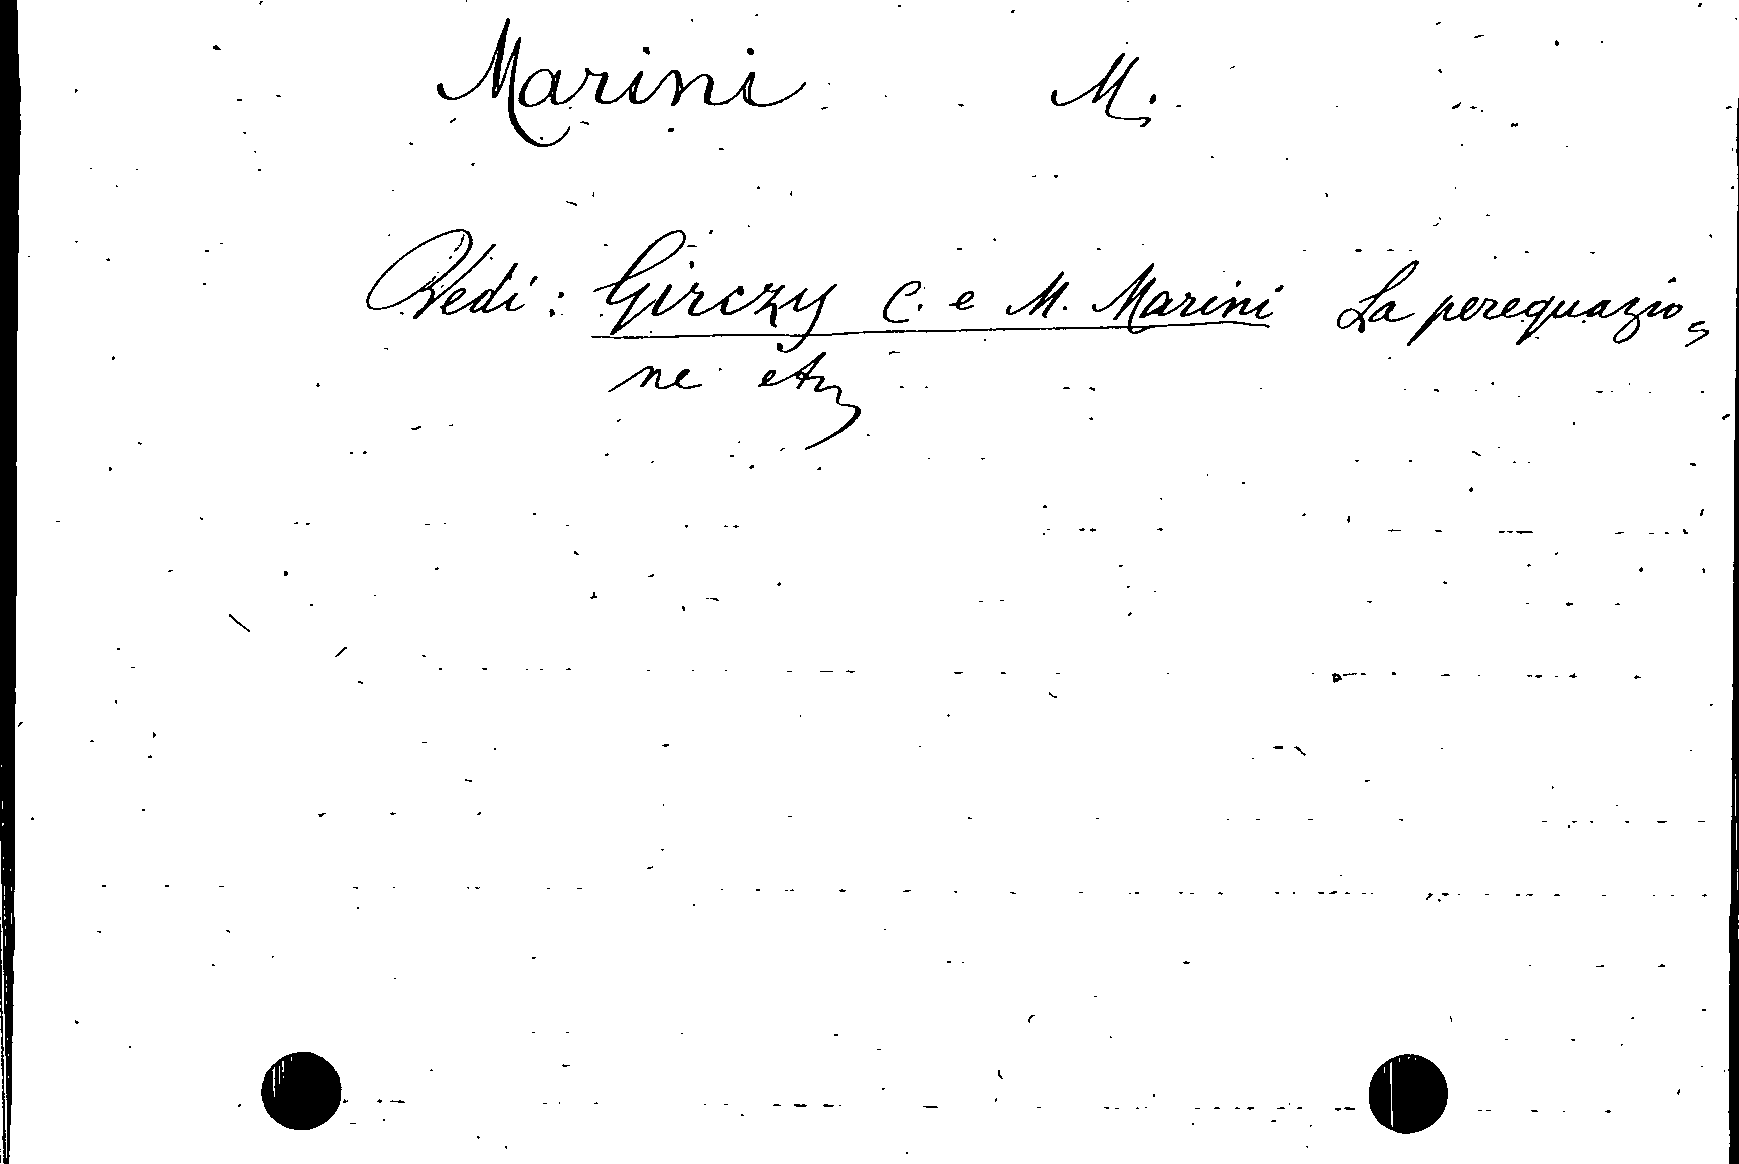 Marini M.
Vedi: Girczy C. e M. Marini La perequazio=
ne etc